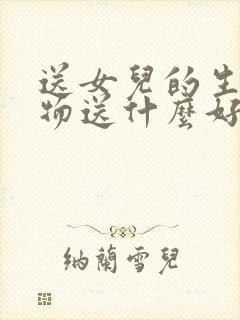 送女兒的生
物送什麼好
納蘭雪兒